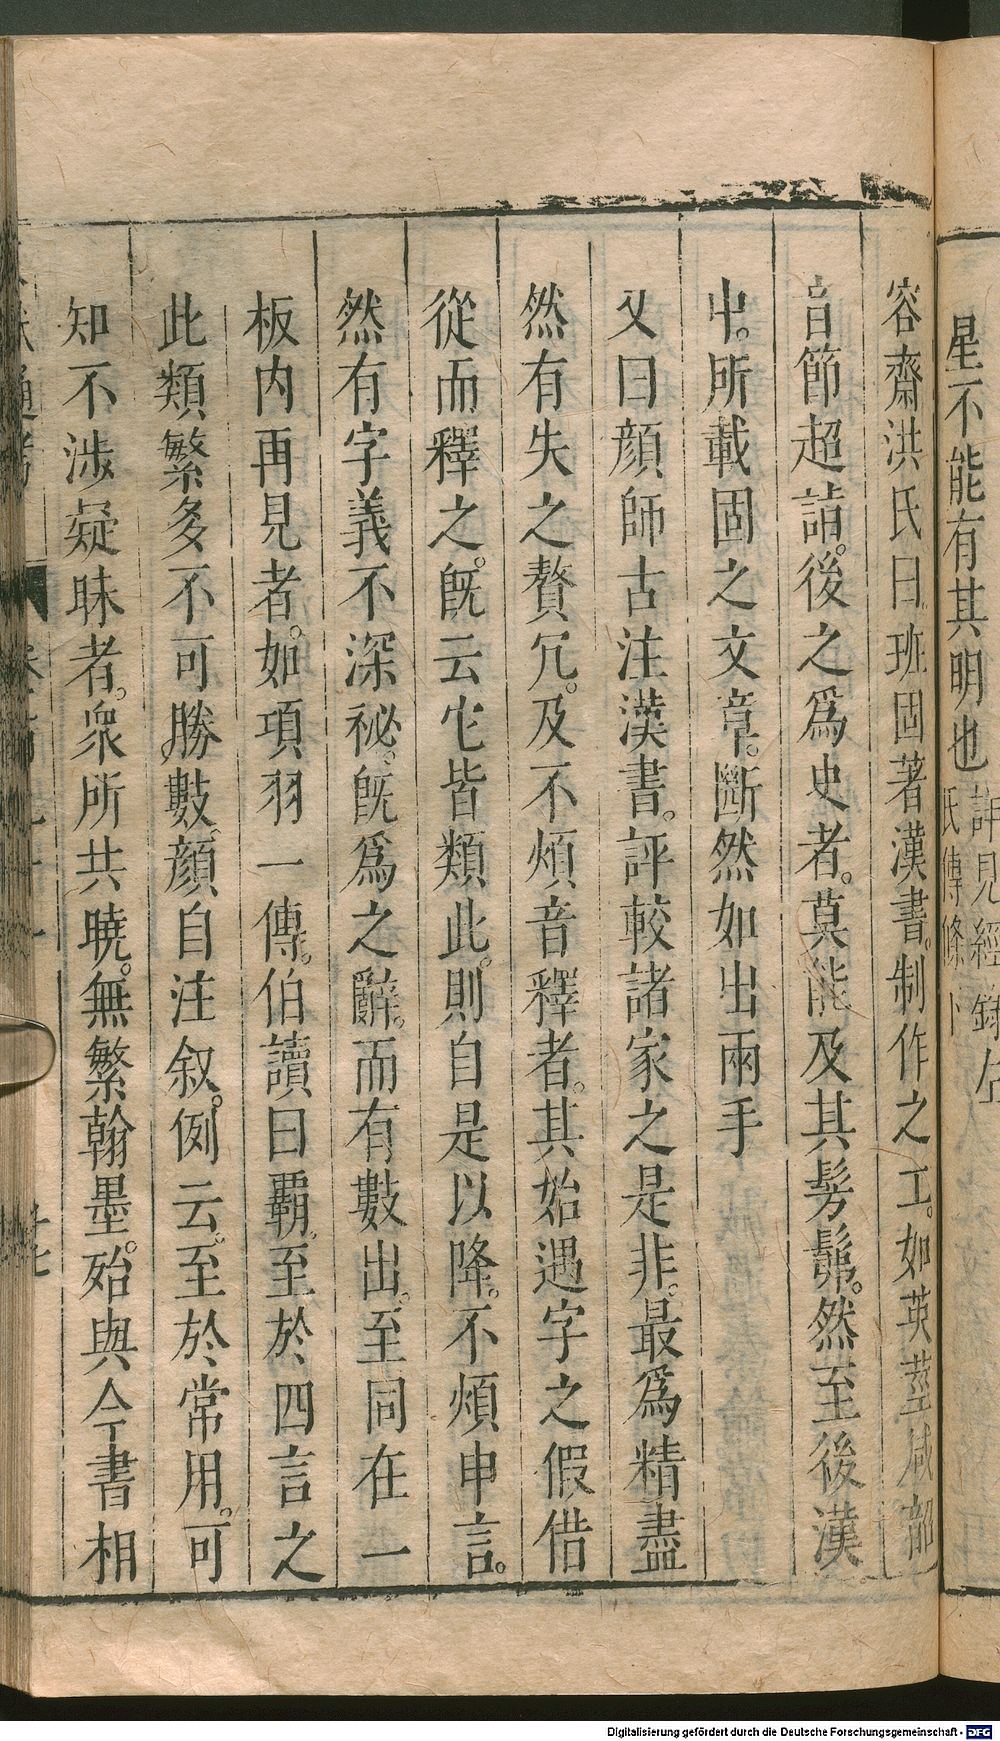 星不能有其明也
詳見經錄
氏傳條下
容齋洪氏曰班固著漢書。制作之工。如英莖咸韶
音節超詣。後之爲史者。莫能及其髣髴。然至後漢
中。所載固之文章。斷然如出兩手
又曰顔師古注漢書。評較諸家之是非。最爲精盡
然有失之贅冗。及不煩音釋者。其始遇字之假借
從而釋之。旣云它皆類此。則自是以降。不煩申言。
然有字義不深祕。旣爲之辭。而有數出。至同在一
板内再見者。如項羽一傳。伯讀曰覇。至於四言之
此類繁多不可勝數。顔自注叙。例云。至於常用。可
知不涉疑昧者。衆所共曉。無繁翰墨。殆與今書相
通考
Digitalisierung gefördert durch die Deutsche Forschungsgemeinschaft - DFG